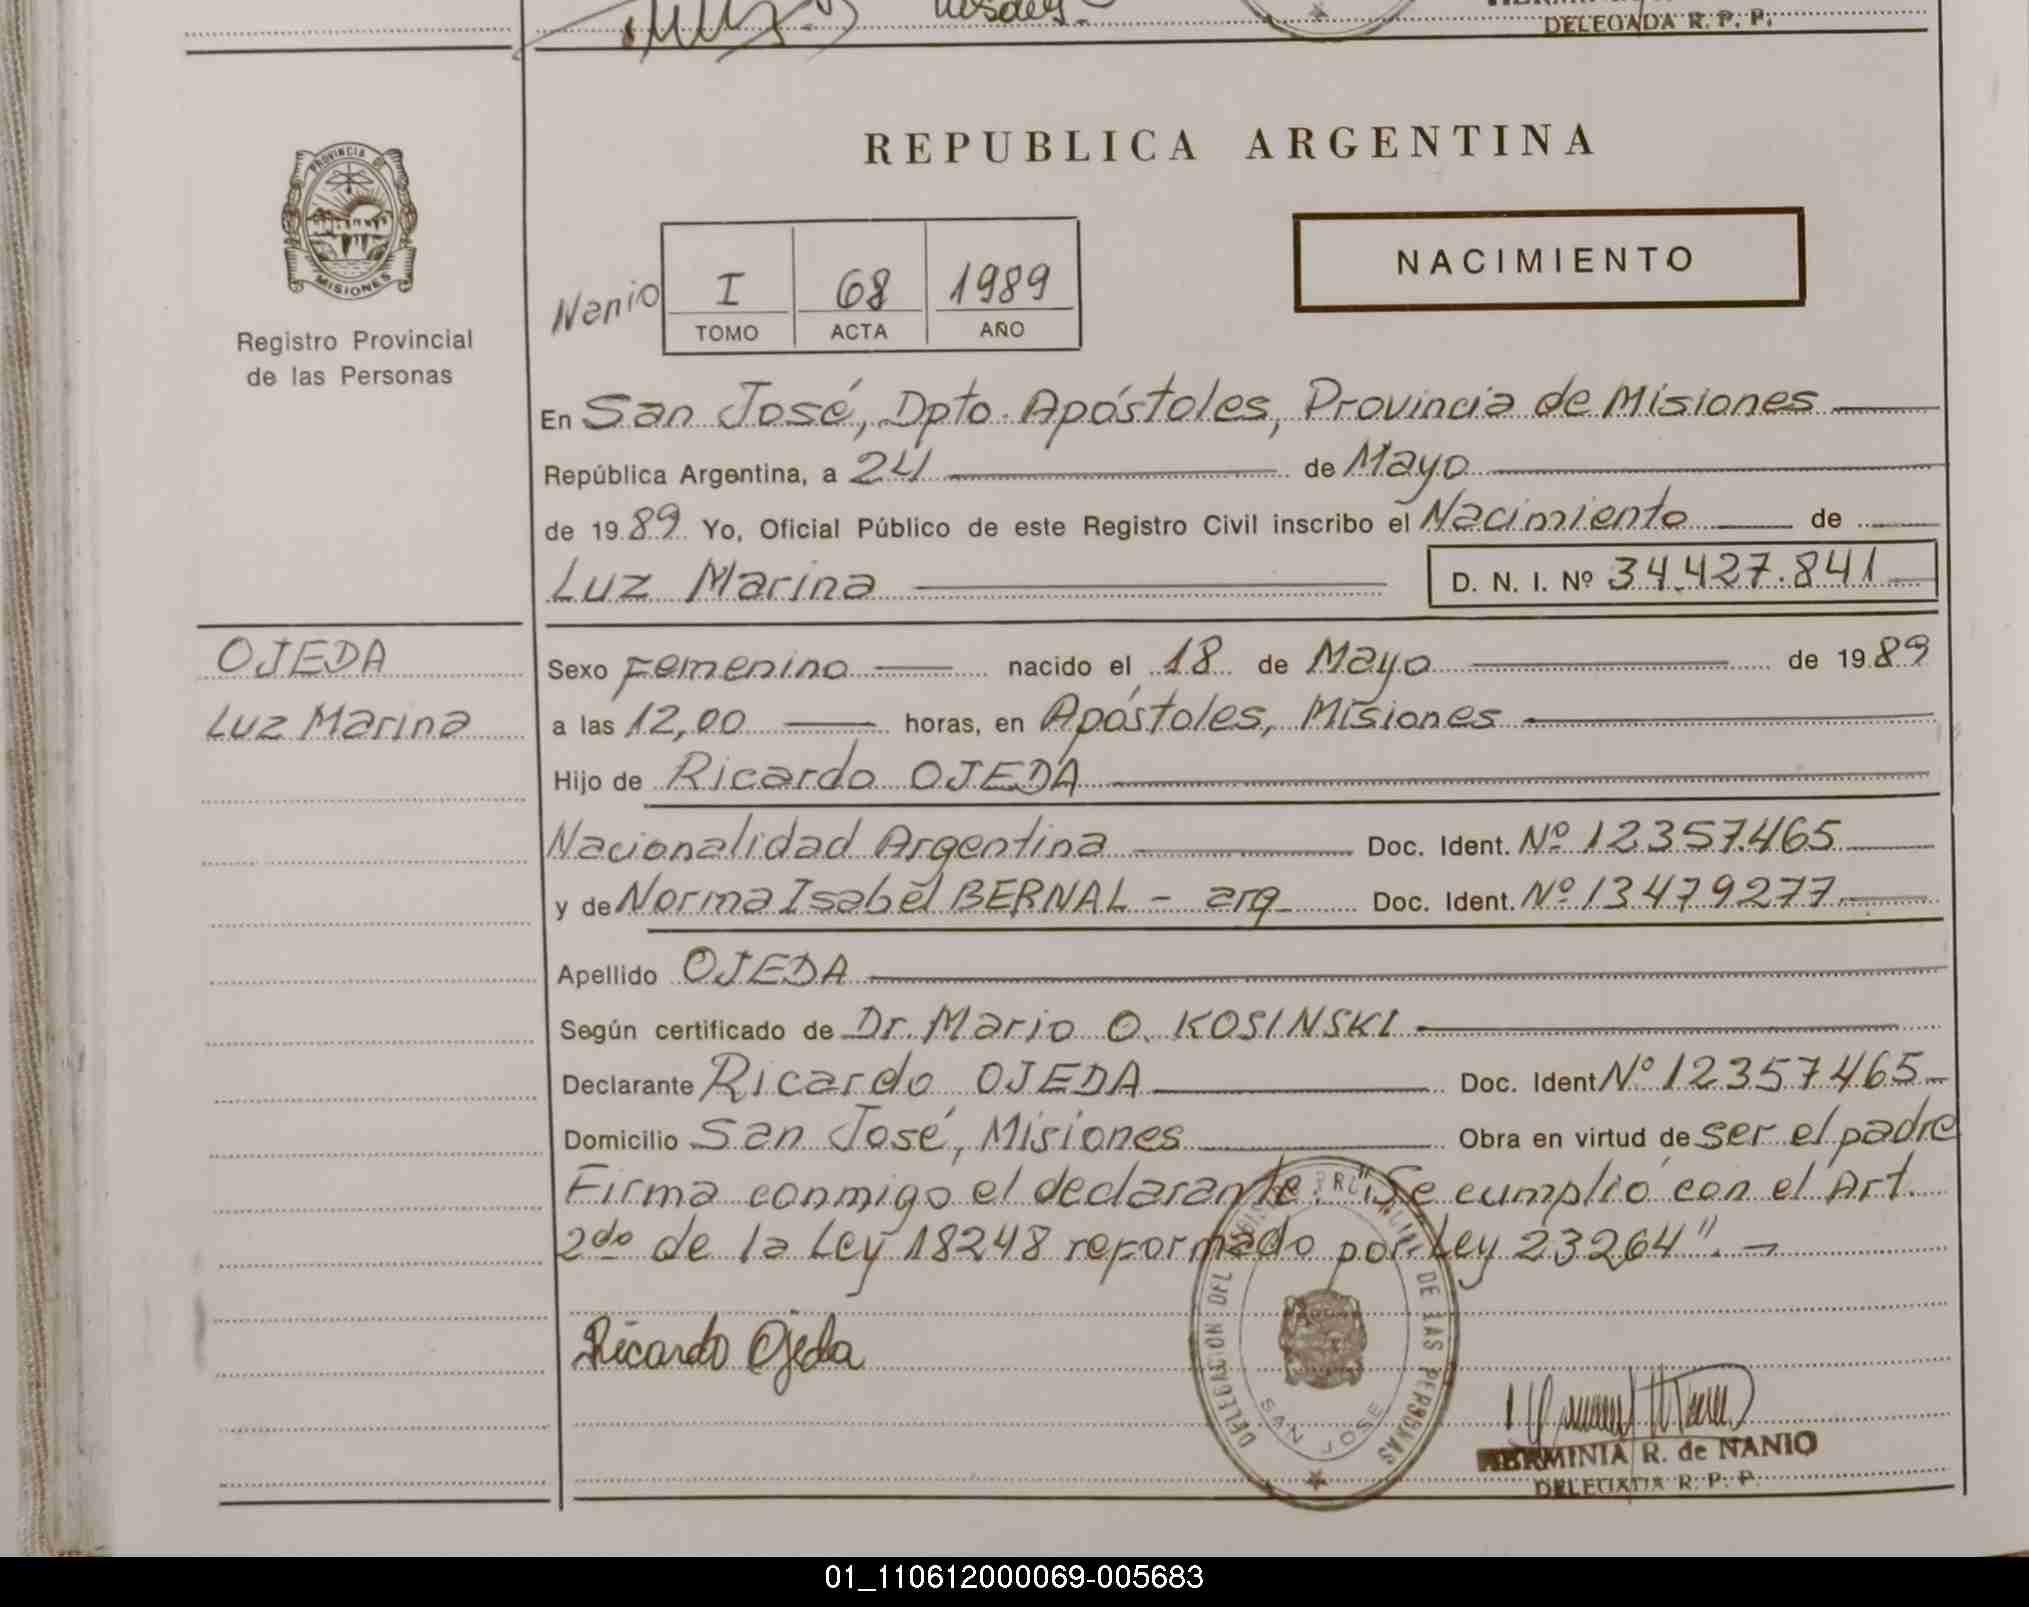 Rosales.
DELEGADA R. P. P.
PROVINCIA DE
MISIONES
Registro Provincial
de las Personas
REPUBLICA ARGENTINA
NACIMIENTO
Nanio
I 68 1989
TOMO ACTA AÑO
En San José, Dpto. Apóstoles, Provincia de Misiones
República Argentina, a 24 de Mayo
de 1989 Yo, Oficial Público de este Registro Civil inscribo el Nacimiento de
Luz Marina D. N. I. Nº 34.427.841
OJEDA
Luz Marina
Sexo Femenino nacido el 18 de Mayo de 1989
a las 12,00 horas, en Apóstoles, Misiones
Hijo de Ricardo OJEDA
Nacionalidad Argentina Doc. Ident. Nº 12357.465
y de Norma Isabel BERNAL - arg Doc. Ident. Nº 13479277
Apellido OJEDA
Según certificado de Dr. Mario O. KOSINSKI
Declarante Ricardo OJEDA Doc. Ident Nº 12357465
Domicilio San José, Misiones Obra en virtud de ser el padre
Firma conmigo el declarante. "Se cumplió con el Art.
2do de la Ley 18248 reformado por Ley 23264".-
Ricardo Ojeda
DELEGACION DEL DE LAS PERSONAS
SAN JOSE
HERMINIA R. de NANIO
DELEGADA R. P. P.
01_110612000069-005683